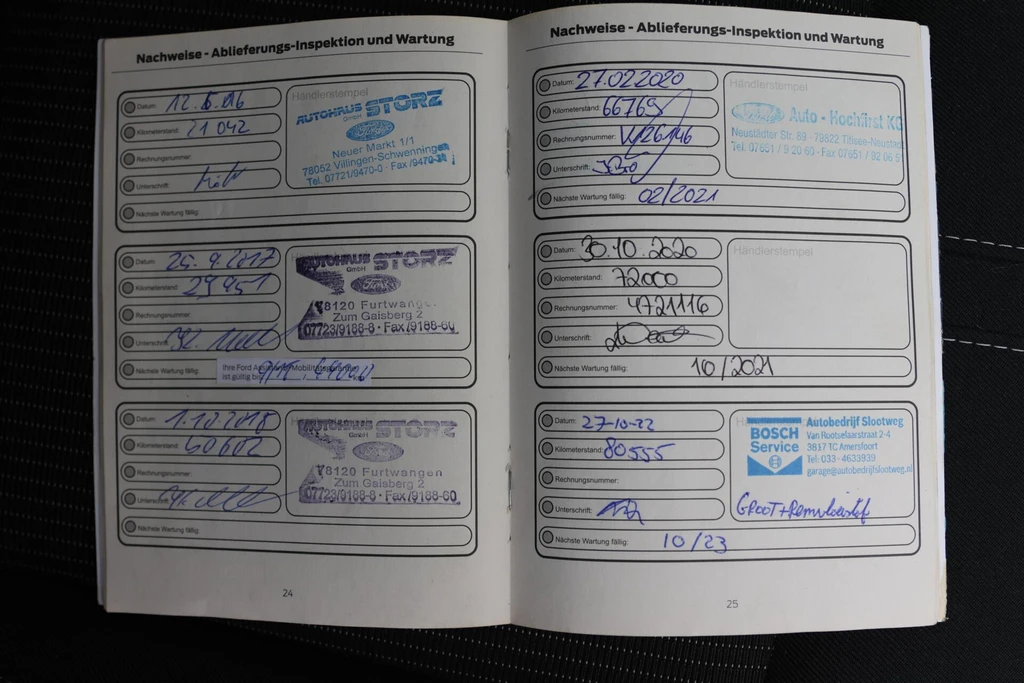 Nachweise - Ablieferungs-Inspektion und Wartung
Datum: 12.5.016
Kilometerstand: 21 042
Rechnungsnummer:
Unterschrift:
Nächste Wartung fällig:
Händlerstempel
AUTOHAUS STORZ
GmbH
Ford
Neuer Markt 1/1
78052 Villingen-Schwenningen
Tel. 07721/9470-0 · Fax /9470-
Datum: 25.9.2017
Kilometerstand: 29951
Rechnungsnummer:
Unterschrift:
Nächste Wartung fällig:
Ihre Ford Mobilitätsgarantie
ist gültig bis
AUTOHAUS STORZ
GmbH
Ford
78120 Furtwangen
Zum Gaisberg 2
07723/9188-8 · Fax /9188-60
Datum: 1.10.2018
Kilometerstand: 50602
Rechnungsnummer:
Unterschrift:
Nächste Wartung fällig:
AUTOHAUS STORZ
GmbH
Ford
78120 Furtwangen
Zum Gaisberg 2
07723/9188-8 · Fax /9188-60
24
Nachweise - Ablieferungs-Inspektion und Wartung
Datum: 27.02.2020
Kilometerstand: 66769
Rechnungsnummer: W26146
Unterschrift:
Nächste Wartung fällig: 02/2021
Händlerstempel
Ford Auto - Hochfirst KG
Neustädter Str. 89 - 79822 Titisee-Neustadt
Tel. 07651 / 9 20 60 - Fax 07651 / 92 06
Datum: 30.10.2020
Kilometerstand: 72000
Rechnungsnummer: 4721116
Unterschrift:
Nächste Wartung fällig: 10/2021
Händlerstempel
Datum: 27-10-22
Kilometerstand: 80555
Rechnungsnummer:
Unterschrift:
Nächste Wartung fällig: 10/23
BOSCH
Service
Autobedrijf Slootweg
Van Rootselaarstraat 2-4
3817 TC Amersfoort
Tel: 033 - 4633939
garage@autobedrijfslootweg.nl
GROOT + Remvloeistof
25